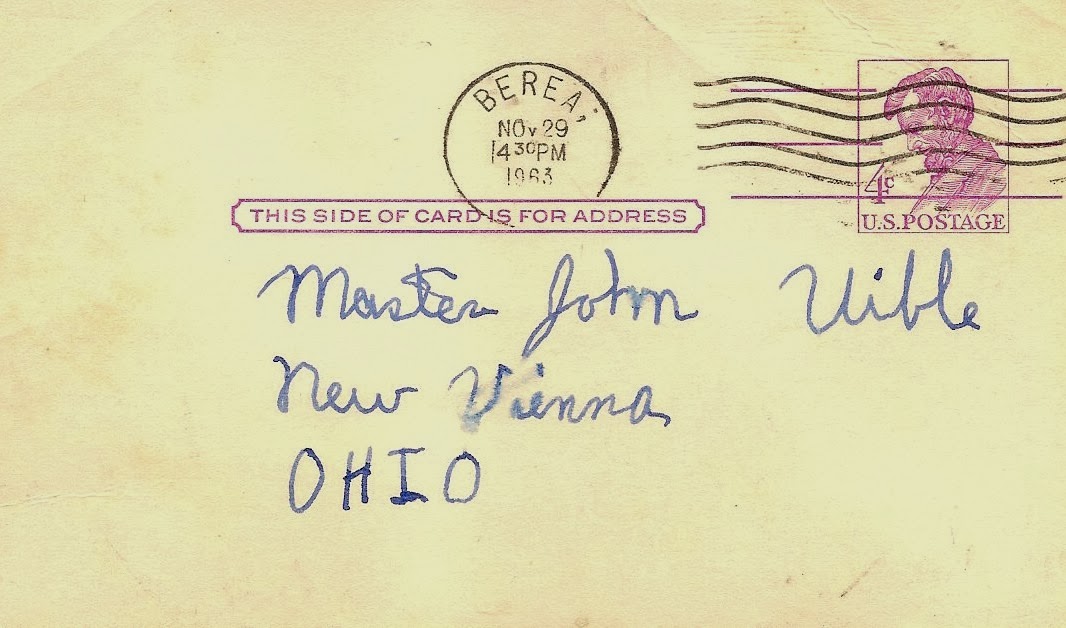 BEREA,
NOV 29
4 30 PM
1963
4c
U.S. POSTAGE
THIS SIDE OF CARD IS FOR ADDRESS
Master John Uible
New Vienna
OHIO